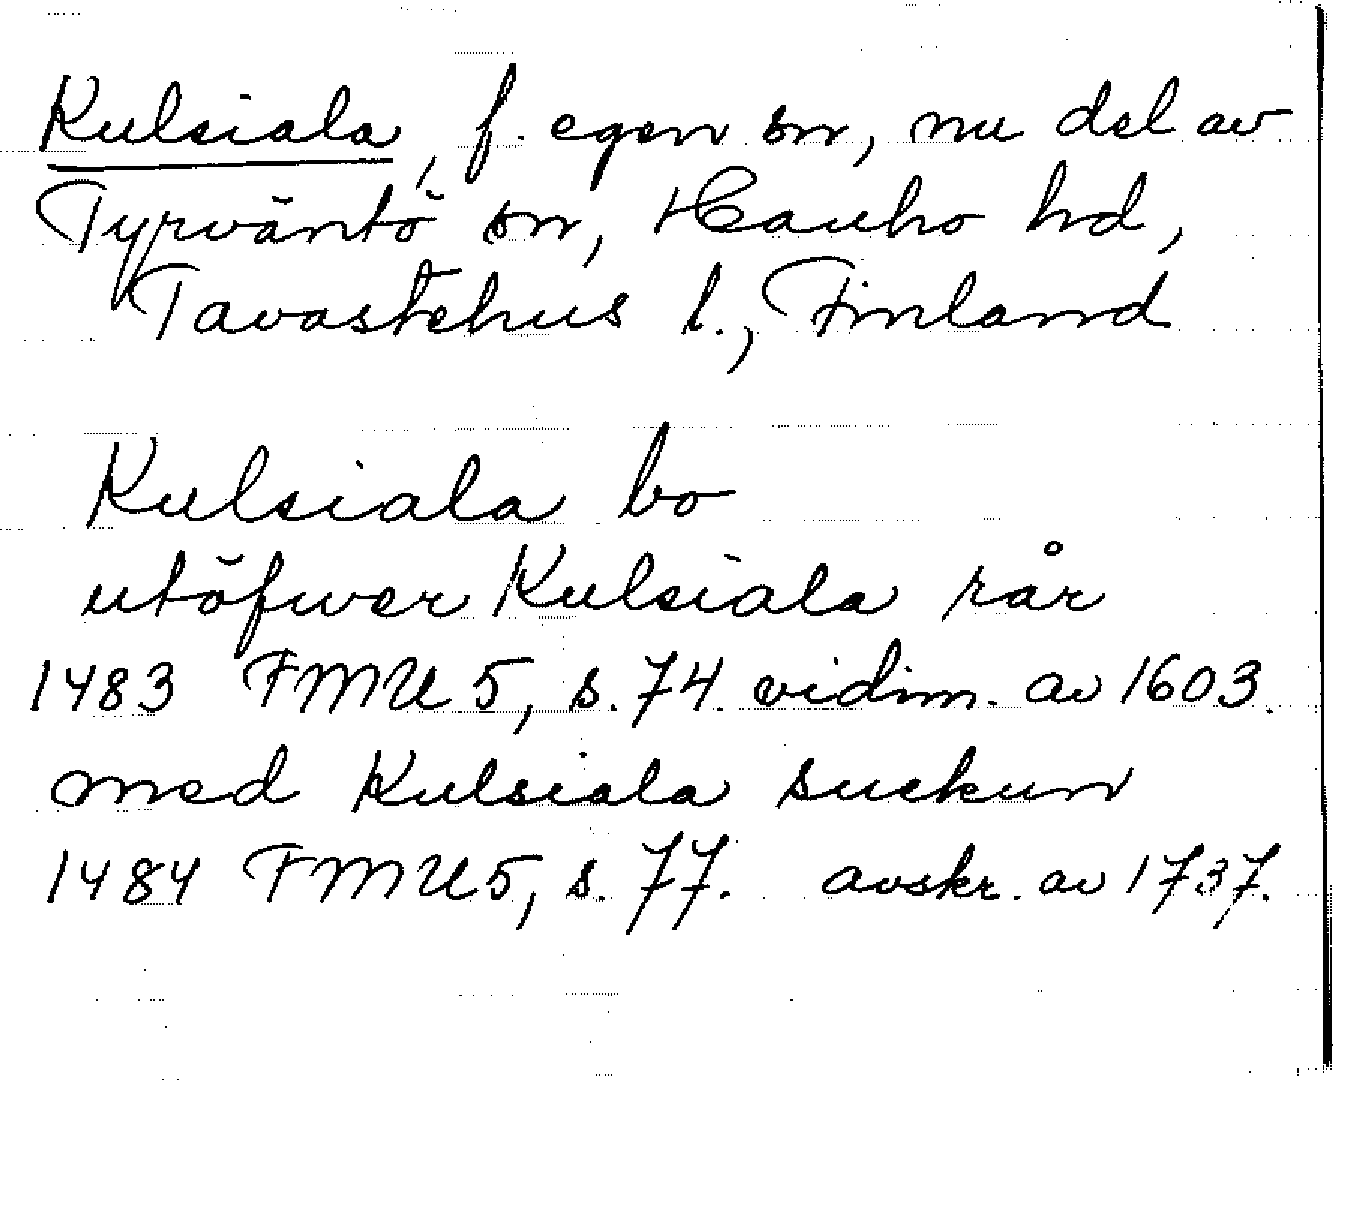 Kulsiala, f. egen sn, nu del av
Tyrväntö sn, Hauho hd,
Tavastehus l., Finland
Kulsiala bo
utöfwer Kulsiala rår
1483 FMU 5, s. 74. vidim. av 1603.
med Kulsiala suckun
1484 FMU 5, s. 77. avskr. av 1737.